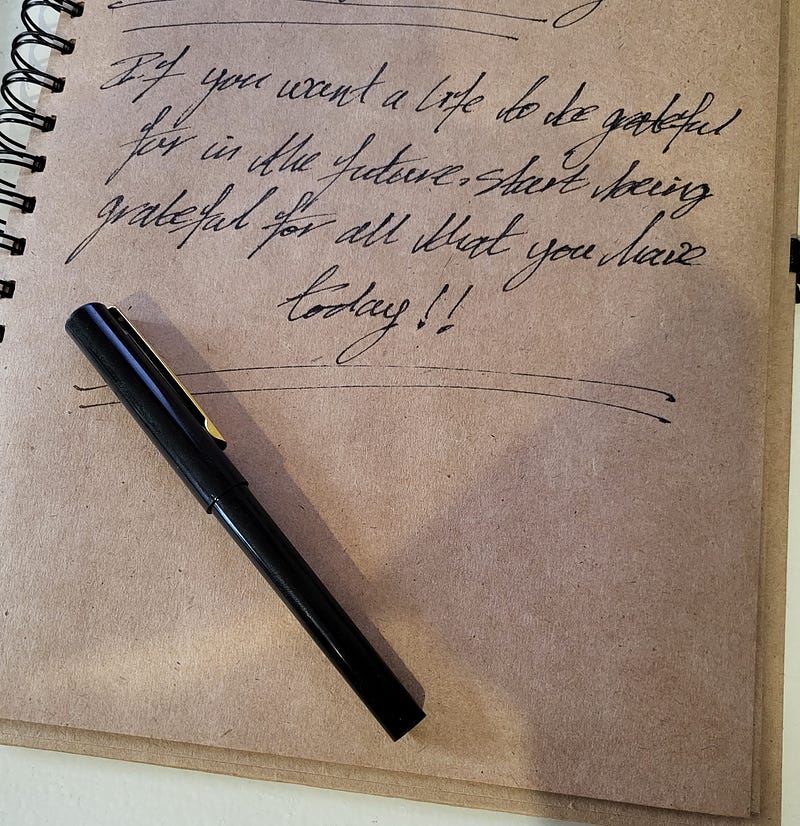 If you want a life to be grateful
for in the future, start being
grateful for all that you have
today!!